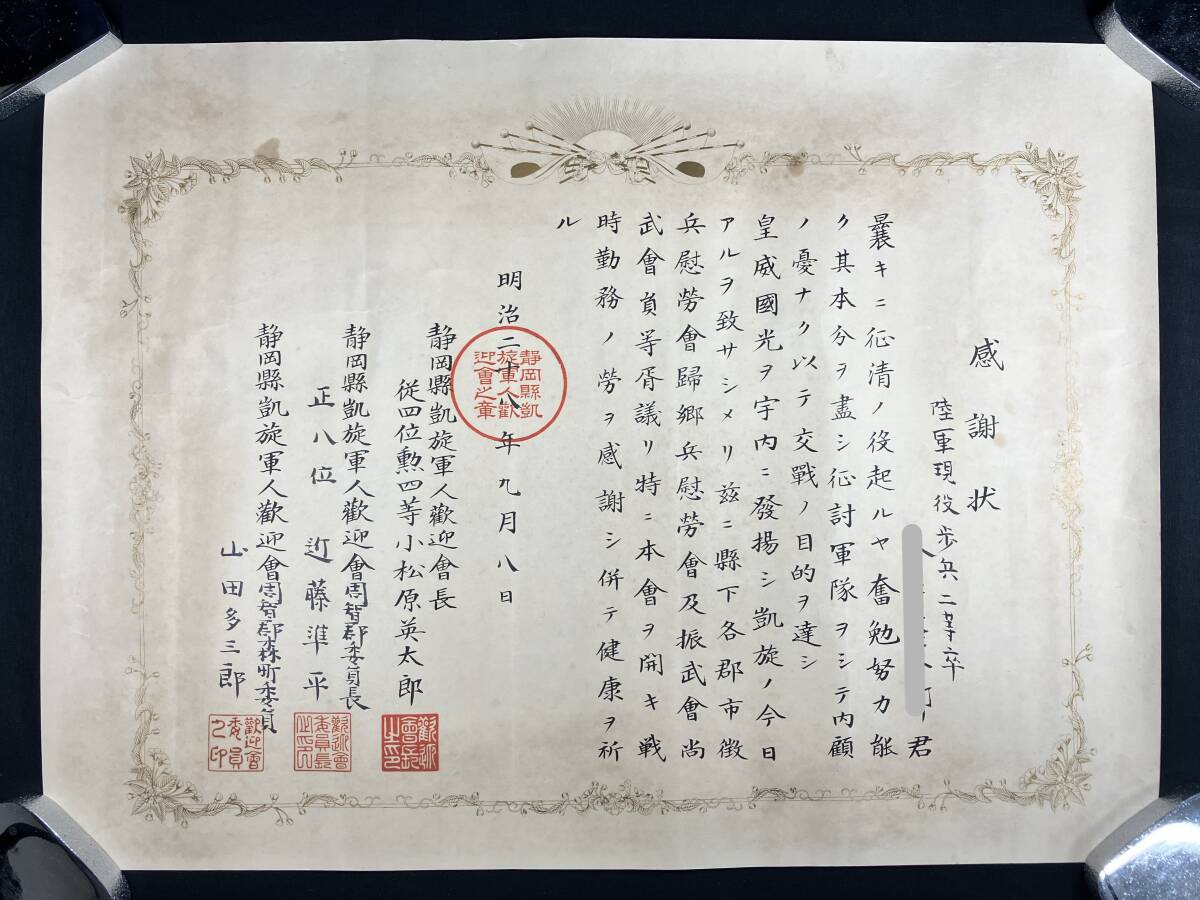 感謝状
陸軍現役歩兵二等卒
君
曩キニ征清ノ役起ルヤ奮勉努力能
ク其本分ヲ盡シ征討軍隊ヲシテ内顧
ノ憂ナク以テ交戰ノ目的ヲ達シ
皇威國光ヲ宇内ニ發揚シ凱旋ノ今日
アルヲ致サシメリ兹ニ縣下各郡市徴
兵慰勞會歸郷兵慰勞會及振武會尚
武會員等胥議リ特ニ本會ヲ開キ戦
時勤務ノ勞ヲ感謝シ併テ健康ヲ祈
ル
明治二十八年九月八日
静岡縣凱旋軍人歡迎會之章
静岡縣凱旋軍人歡迎會長
従四位勲四等小松原英太郎
歡迎會長之印
静岡縣凱旋軍人歡迎會周智郡委員長
正八位 近藤準平
歡迎會委員長之印
静岡縣凱旋軍人歡迎會周智郡森町委員
山田多三郎
歡迎會委員之印